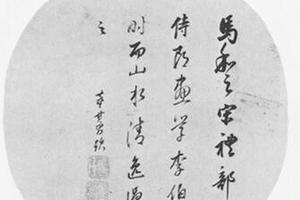 馬和之宋禮部
侍郎畫學李伯
時而山水清逸過
之
董其昌跋